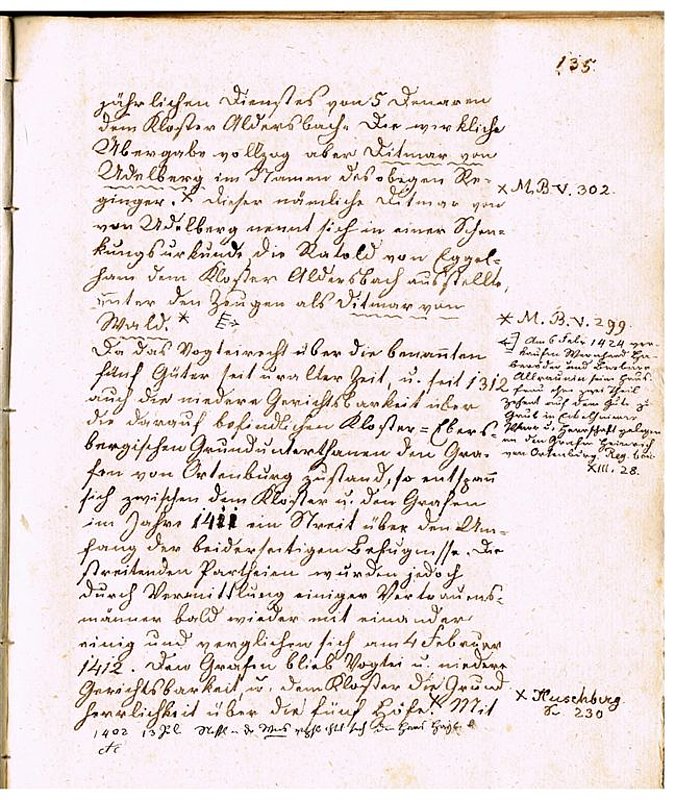 135.
jährlichen Dienstes von 5 Denaren
dem Kloster Aldersbach. Die wirkliche
Übergabe vollzog aber Ditmar von
Udelberg im Namen des obegen Re-
ginger. x Dieser nämliche Ditmar von
von Udelberg nennt sich in einer Schen-
kungsurkunde, die Ratold von Eggel-
ham dem Kloster Aldersbach ausstellte,
unter den Zeugen als Ditmar von
Wald. *
Da das Vogteirecht über die benannten
fünf Güter seit uralter Zeit, u. seit 1312
auch die niedere Gerichtsbarkeit über
die darauf befindlichen Kloster=Ebers-
bergischen Grundunterthanen den Gra-
fen von Ortenburg zustand, so entspann
sich zwischen dem Kloster u. den Grafen
im Jahre 1411 ein Streit über den Um-
fang der beiderseitigen Befugnisse. Die
streitenden Partheien wurden jedoch
durch Vermittlung einiger Vertrauens-
männer bald wieder mit einander
einig und verglichen sich am 4 Februar
1412. Dem Grafen blieb Vogtei u. niedere
Gerichtsbarkeit, u. dem Kloster die Grund
herrlichkeit über die fünf Höfe. x Mit
1402 13 Jul
x M. B. V. 302.
* M. B. V. 299.
Am 6 Febr 1424 ver-
kaufen Wernhard
und Barbara
Allrauuin sein Haus-
frau ihre zwei Theil
Zehent auf dem Gute zu
Grub in
Pfarr u. Herrschaft gelegen
an den Grafen Heinrich
von Ortenburg. Reg. boic
XIII. 28.
x Huschberg
S. 230